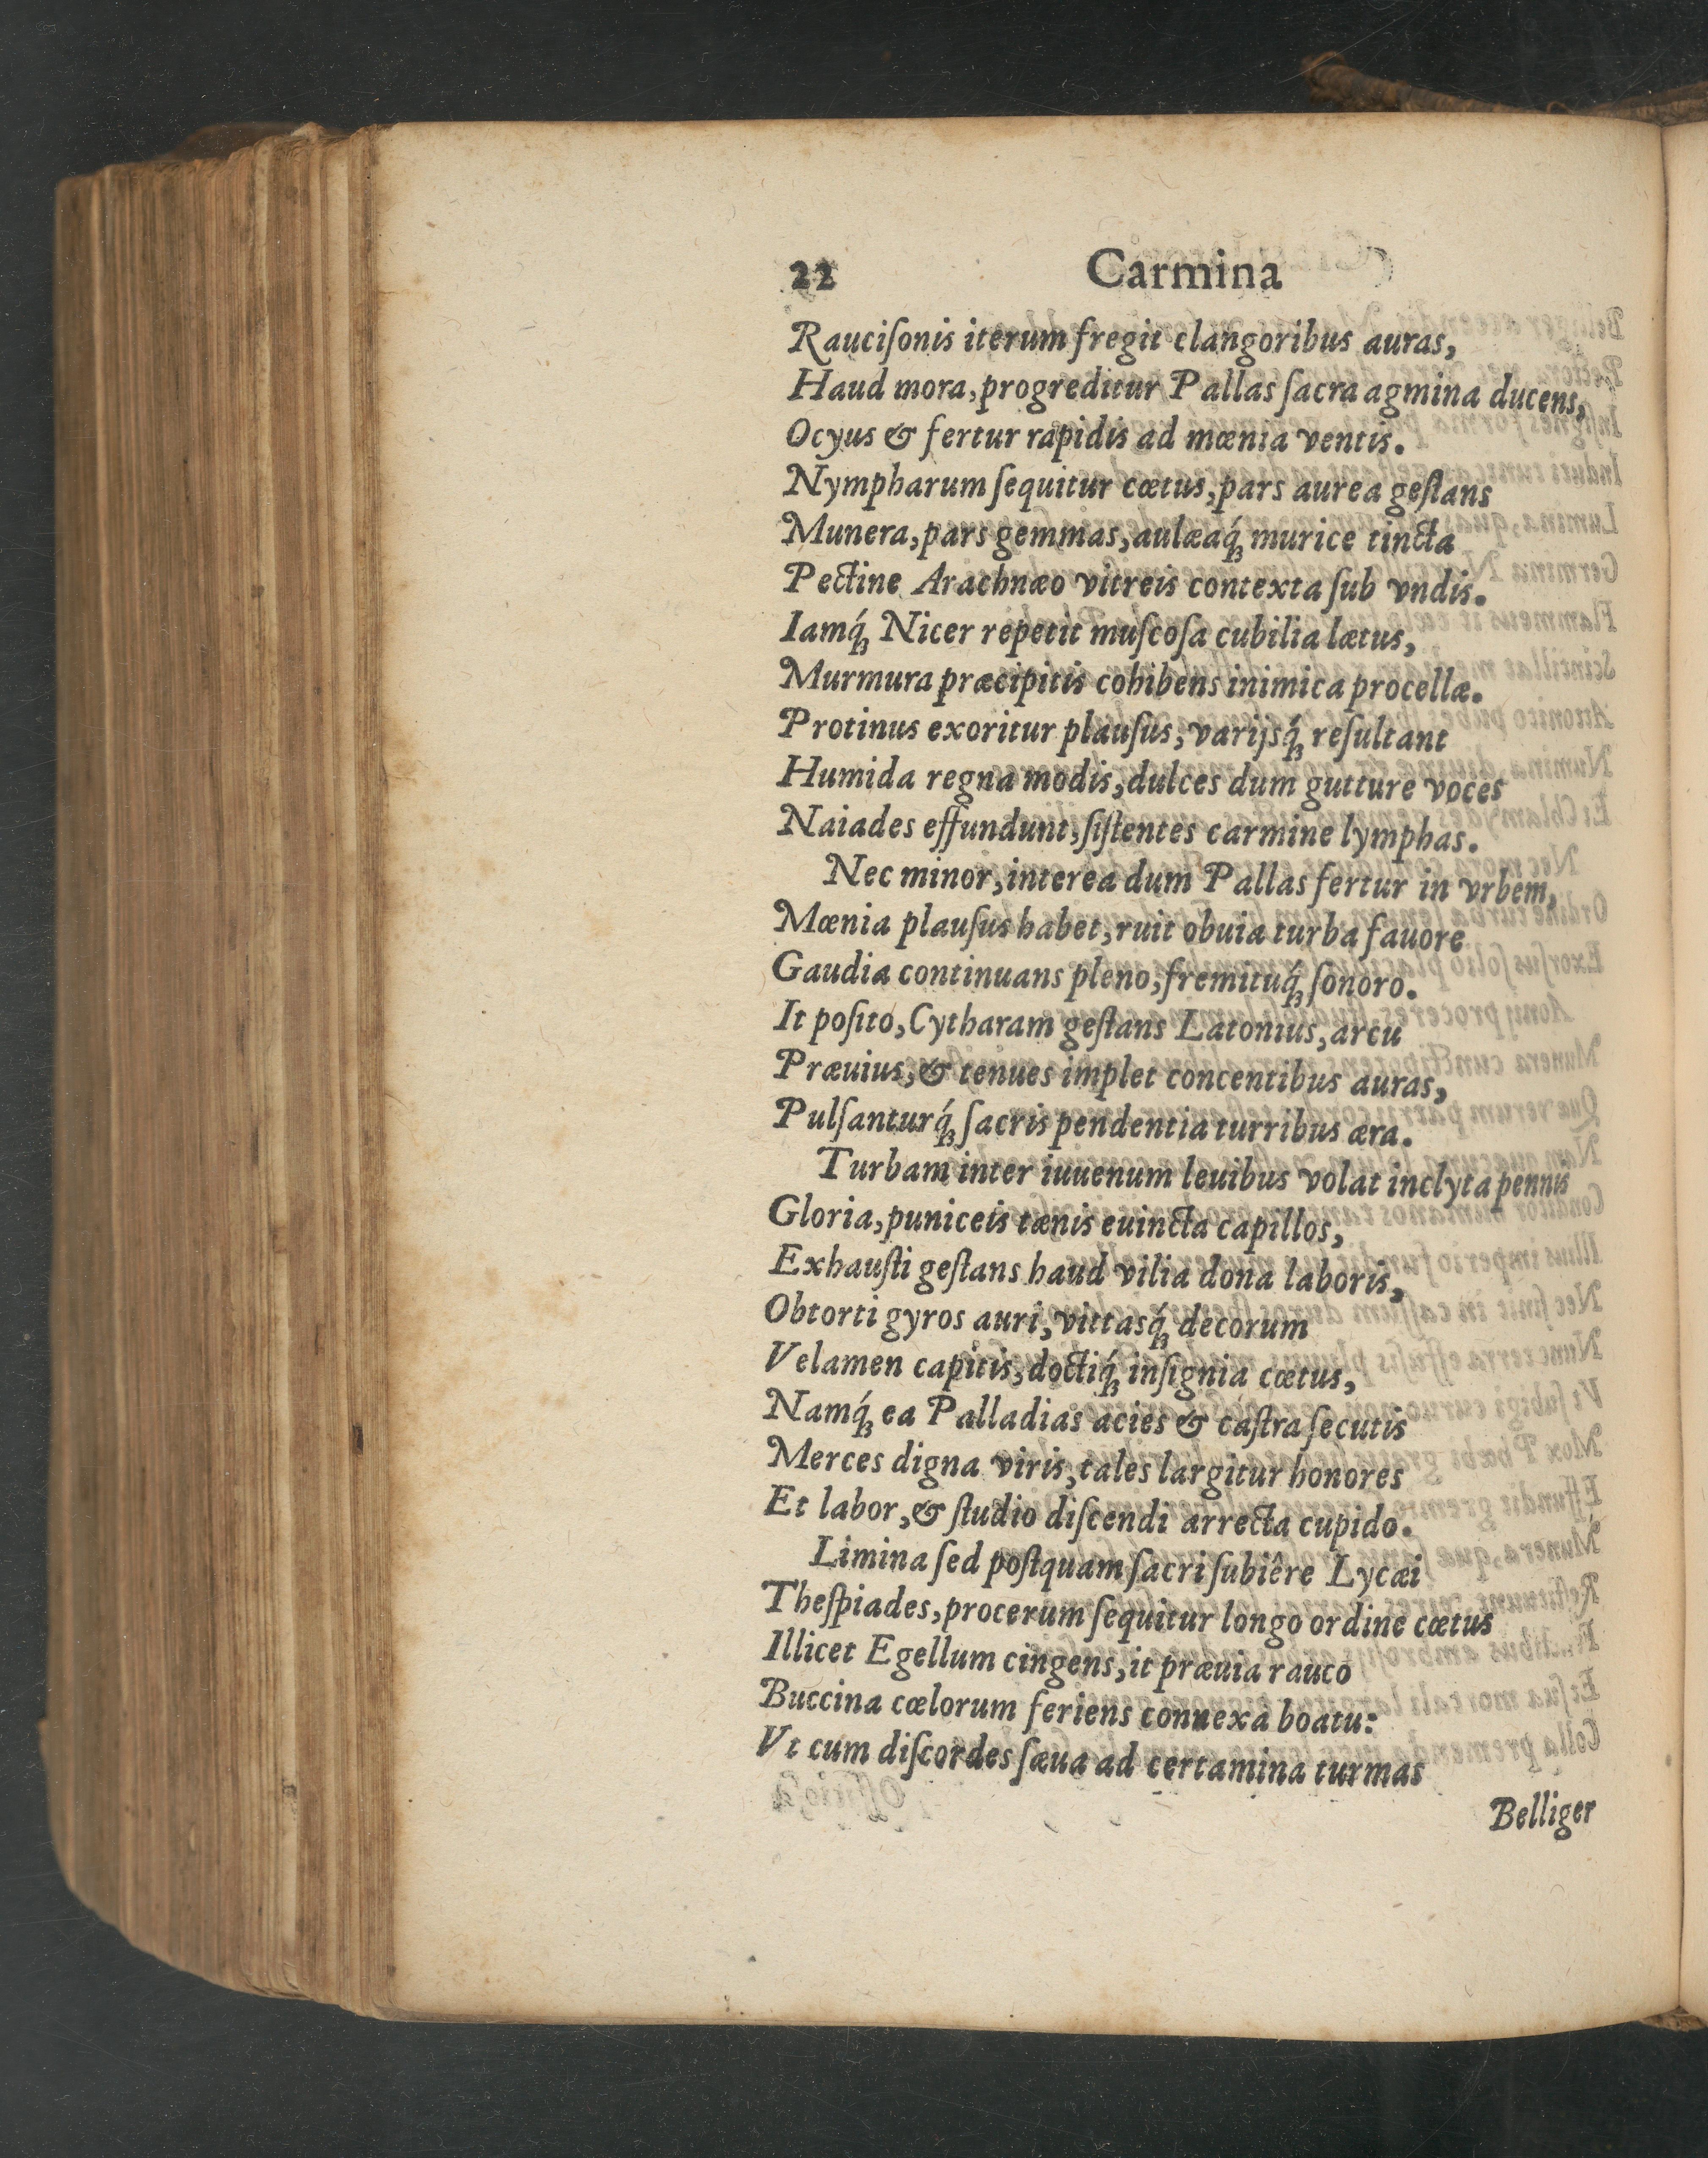 22 Carmina
Rauciſonis iterum fregit clangoribus auras,
Haud mora, progreditur Pallas ſacra agmina ducens,
Ocyus & fertur rapidis ad mœnia ventis.
Nympharum ſequitur cœtus, pars aurea geſtans
Munera, pars gemmas, aulæaq́ꝫ murice tincta
Pectine Arachnæo vitreis contexta ſub vndis.
Iamq́ꝫ Nicer repetit muſcoſa cubilia lætus,
Murmura præcipitis cohibens inimica procellæ.
Protinus exoritur plauſus, varijsq́ꝫ reſultant
Humida regna modis, dulces dum gutture voces
Naiades effundunt, ſiſtentes carmine lymphas.
Nec minor, interea dum Pallas fertur in vrbem,
Mœnia plauſus habet, ruit obuia turba fauore
Gaudia continuans pleno, fremituq́ꝫ ſonoro.
It poſito, Cytharam geſtans Latonius, arcu
Præuius, & tenues implet concentibus auras,
Pulſanturq́ꝫ ſacris pendentia turribus æra.
Turbam inter iuuenum leuibus volat inclyta pennis
Gloria, puniceis tænis euincta capillos,
Exhauſti geſtans haud vilia dona laboris,
Obtorti gyros auri, vittasq́ꝫ decorum
Velamen capitis, doctiq́ꝫ inſignia cœtus,
Namq́ꝫ ea Palladias acies & caſtra ſecutis
Merces digna viris, tales largitur honores
Et labor, & ſtudio diſcendi arrecta cupido.
Limina ſed poſtquam ſacri ſubiêre Lycæi
Theſpiades, procerum ſequitur longo ordine cœtus
Illicet Egellum cingens, it præuia rauco
Buccina cœlorum feriens connexa boatu:
Vt cum diſcordes ſæua ad certamina turmas
Belliger